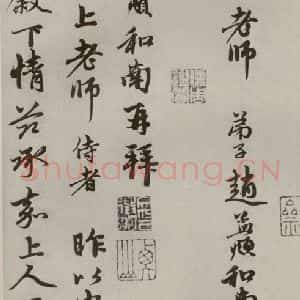 老師 弟子趙孟頫和南
頫和南再拜
上老師 侍者 昨以
敘下情茲承嘉上人
Shufawang.CN